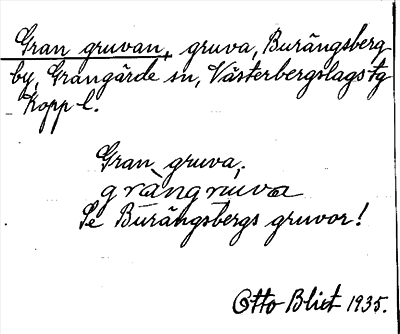 Gran gruvan, gruva, Burängsberg
by, Grangärde sn, Västerbergslags tg
Kopp l.
Gran gruva,
grängruva
Se Burängsbergs gruvor!
Otto Blixt 1935.